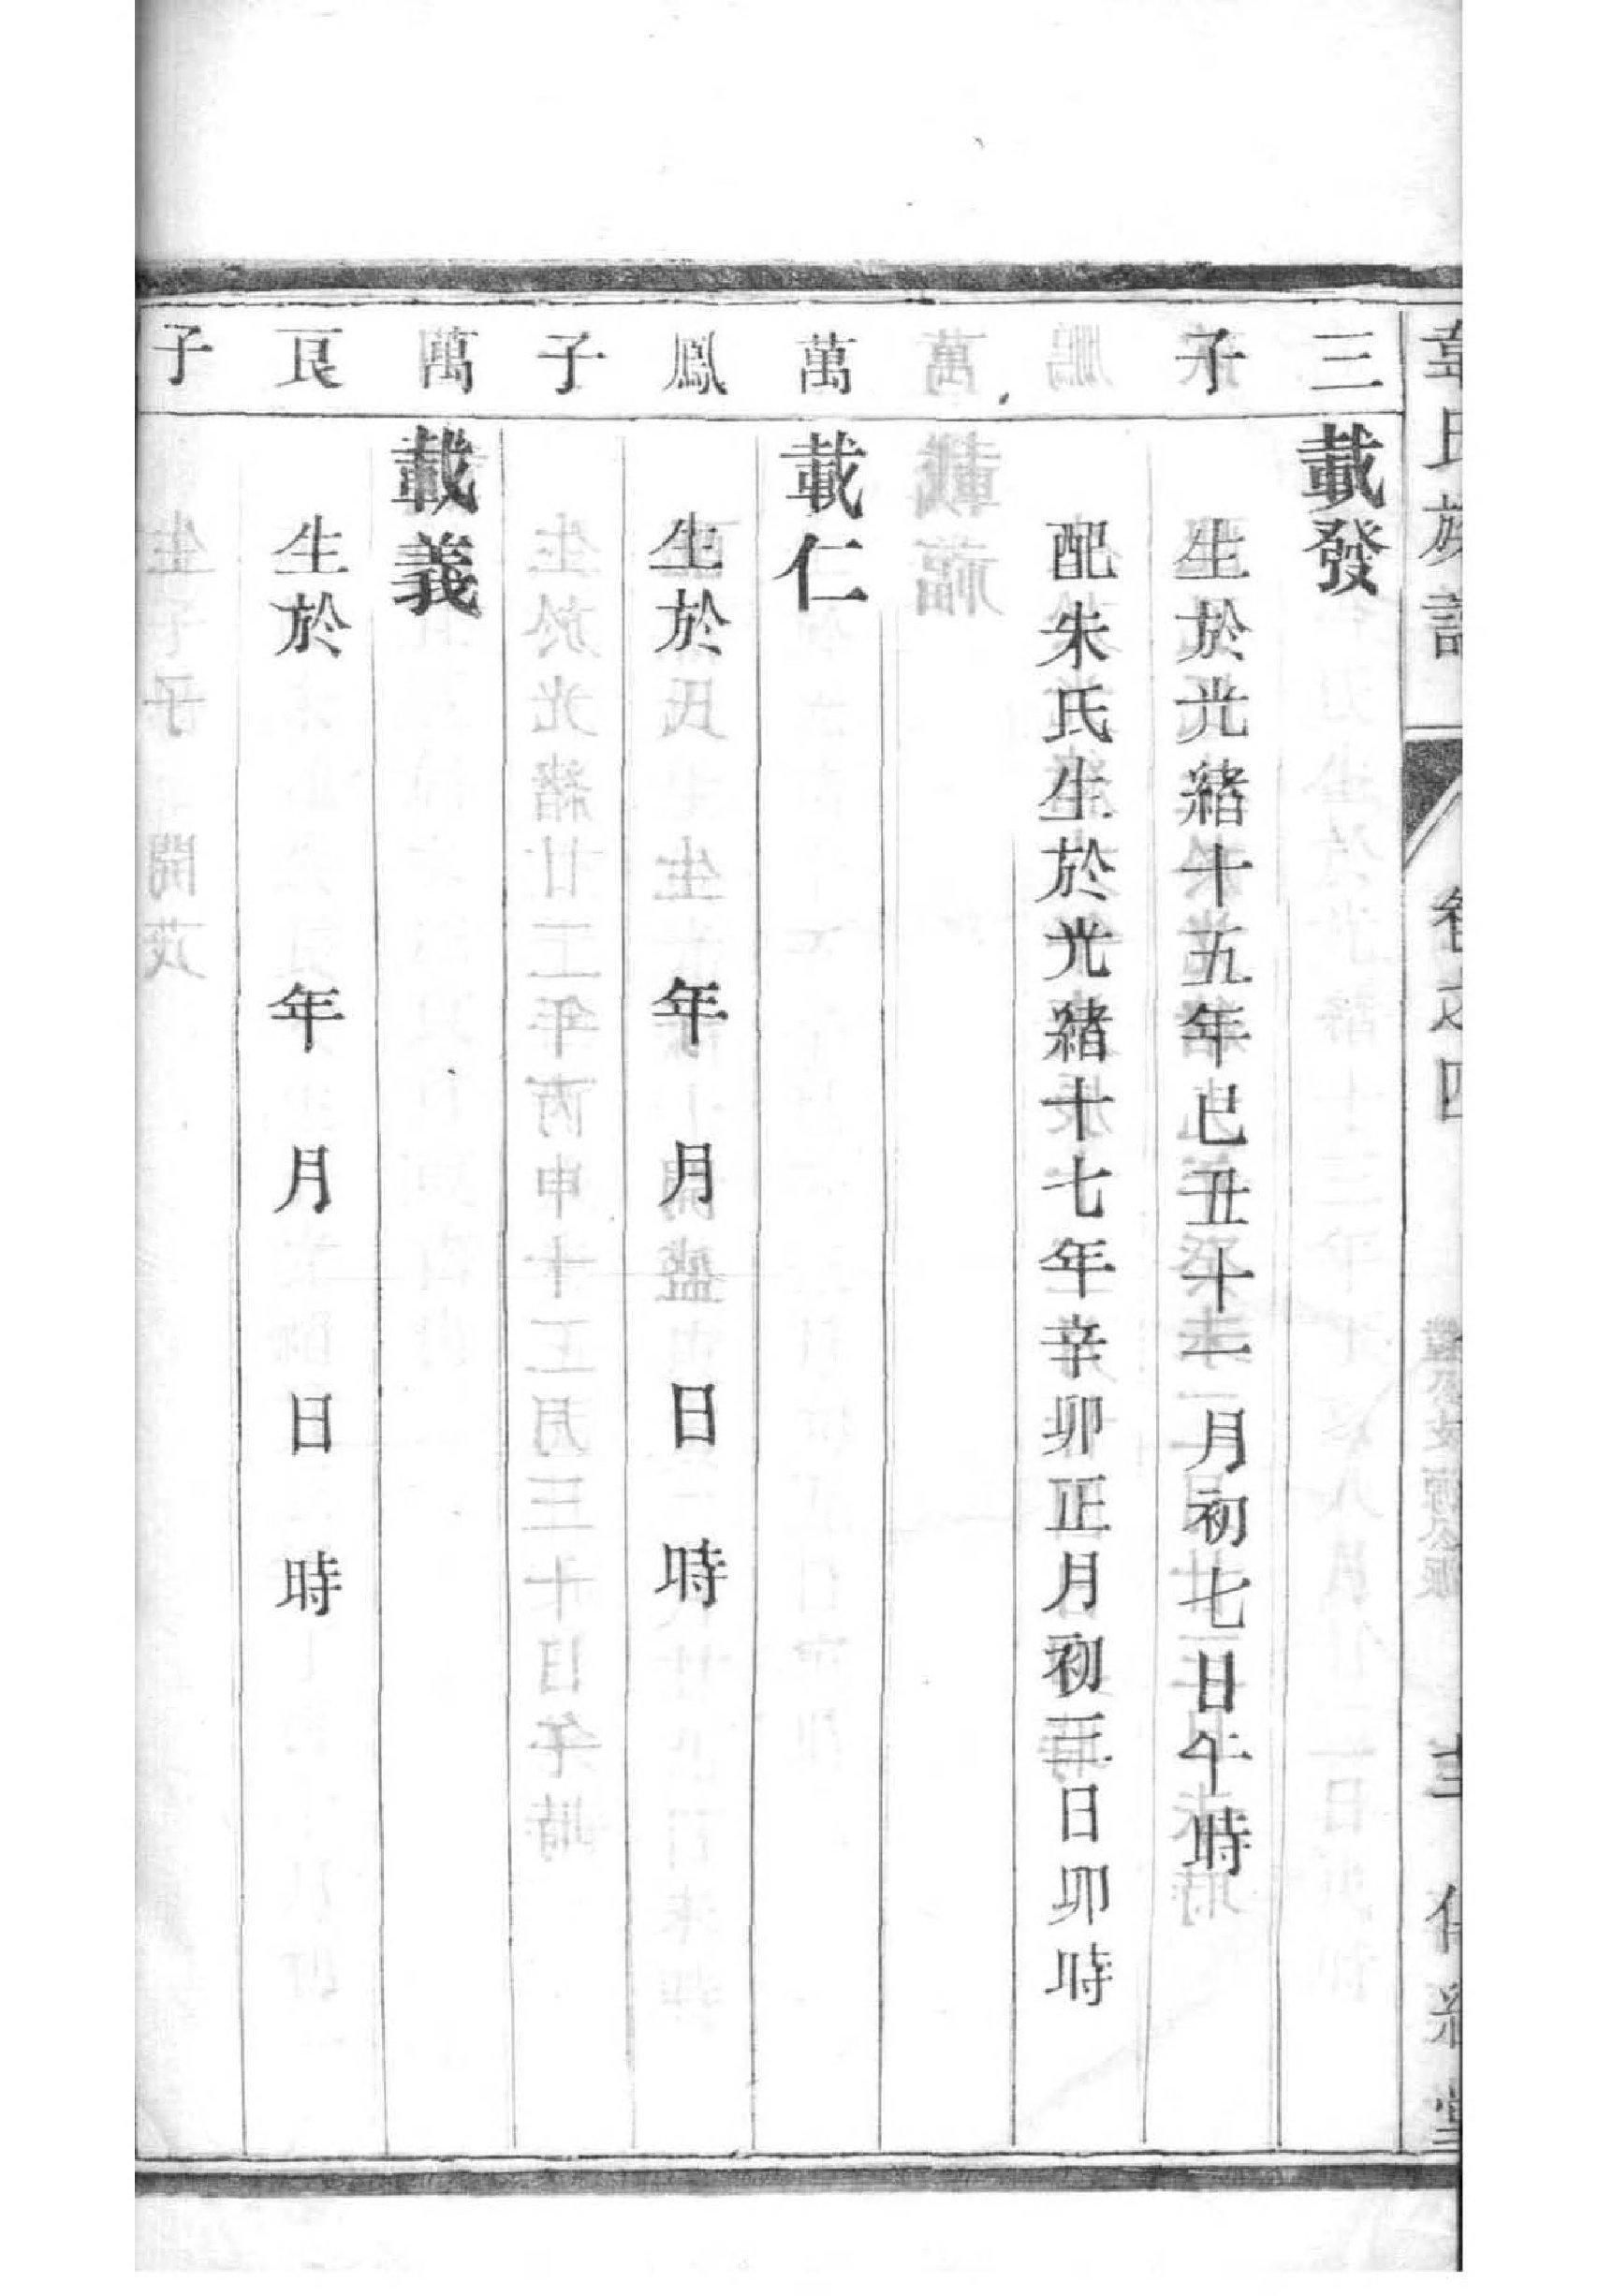 章氏族譜
卷之四
三
載發
子
生於光緒十五年已丑十一月初七日午時
配朱氏生於光緒十七年辛卯正月初三日卯時
萬
載仁
鳳
生於 年 月 日 時
子
萬
載義
良
生於 年 月 日 時
子